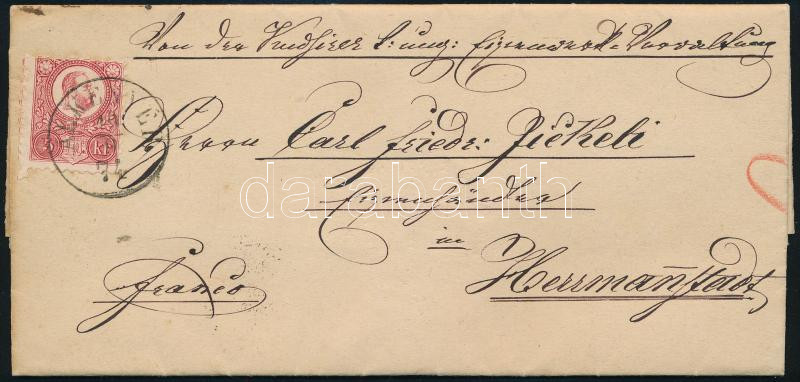 Von der Kudsirer k: ung: Eisenwerks-Verwaltung
5 kr
Herrn Carl Friedr: Jickeli
Eisenhändler
in
Herrmannstadt
franco
darabanth